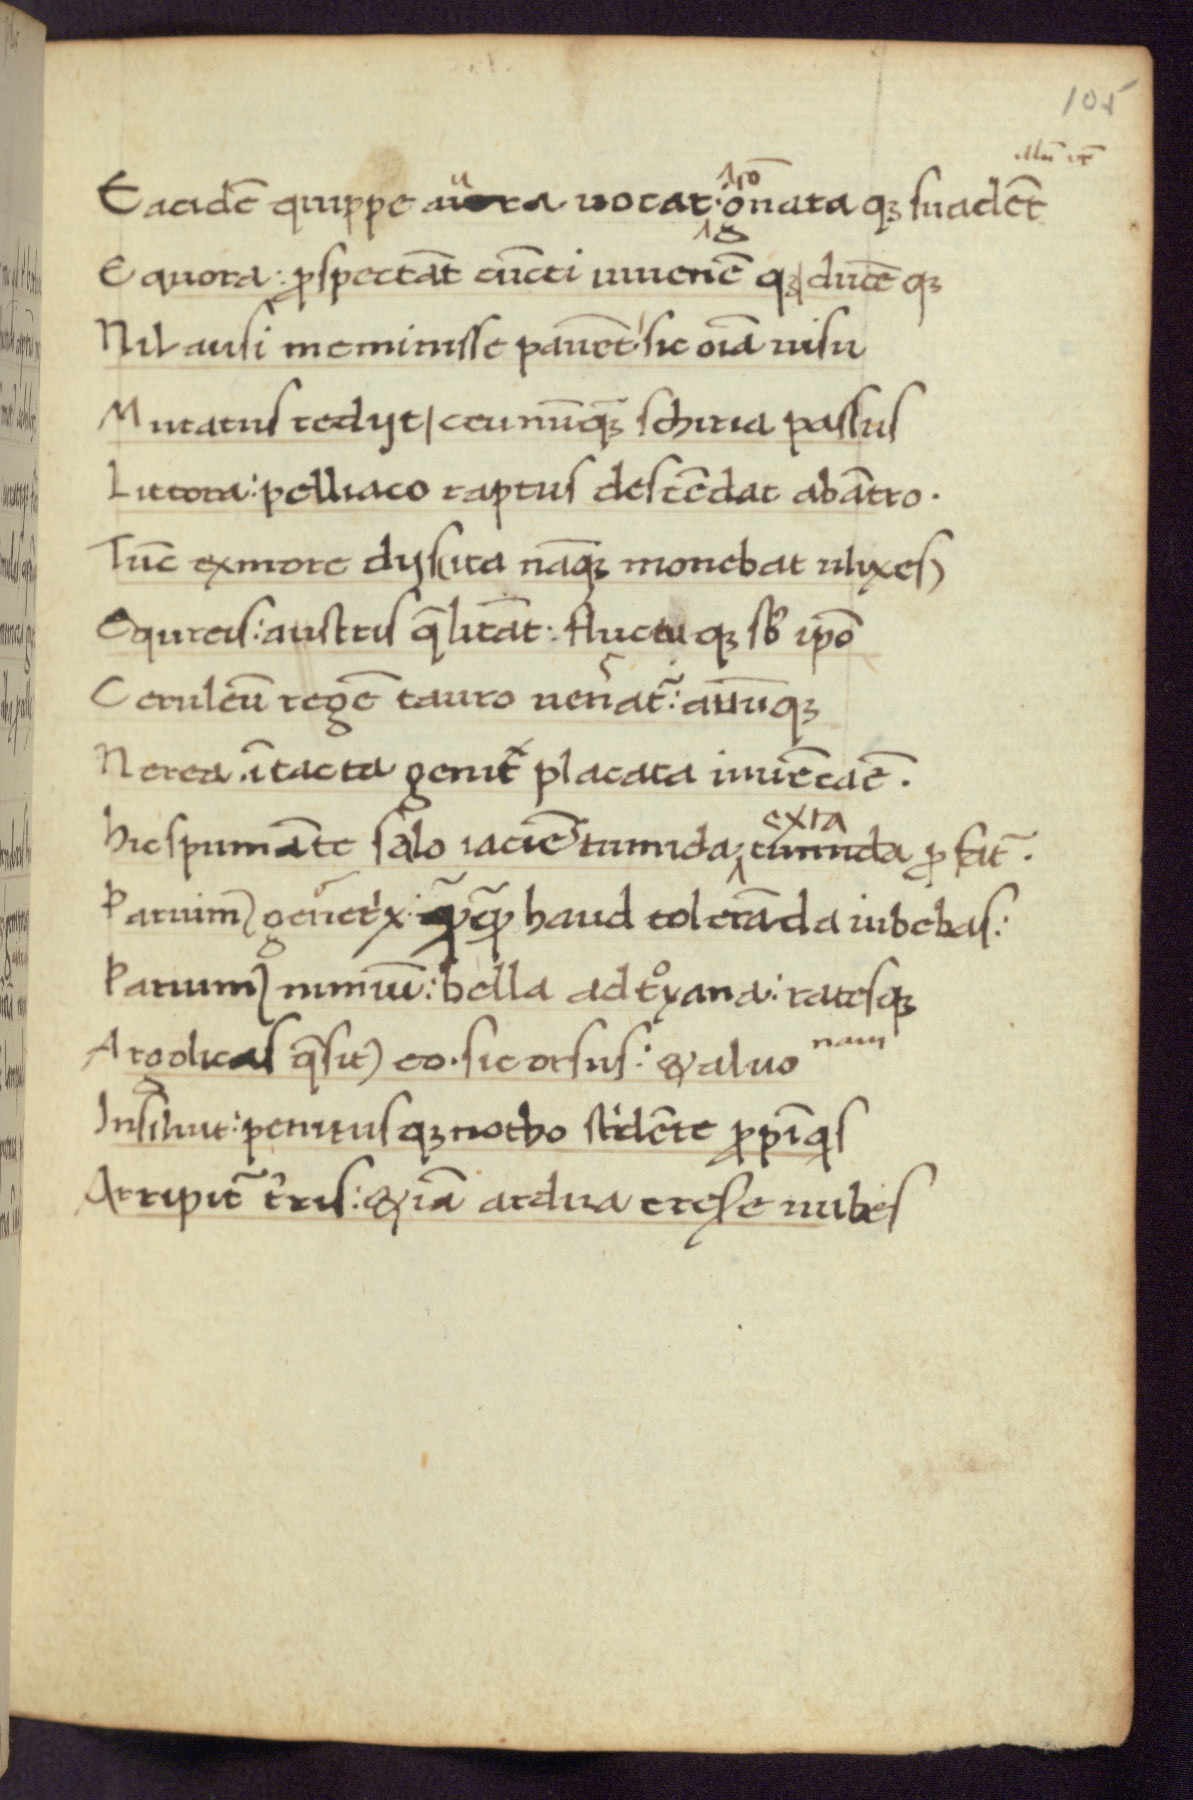 105
Eacidē quippe aura uocat: g̃nata qꝫ suadēt
Equora: ꝓspectāt cūcti iuuenē qꝫ / ducē qꝫ
Nil ausi meminisse pauēt / sic oīa uisu
Mutatus redijt / ceu nūqꝫ schiria passus
Littora: pelliaco raptus descēdat abātro.
Tūc exmore dij sita nāqꝫ monebat ulixes)
Equreis: austris q̄ litāt: fluctu qꝫ sb ip̄o
Ceruleū regē tauro uenat̃: auūqꝫ
Nerea. ītacta genit̃ placata iuuēcaē.
hic spumāte salo iaciēs tumida exta ꝓ fat̃.
Paruim) genet'x: q̄ꝙ haud tolerāda iubebas:
Paruim) nimiū: bella ad t°yana: ratesqꝫ
Argolicas q̄sit) eo. sic orsus: & aluo nam
Insiluit: penitus qꝫ notho st'dēte ꝓpīqs
Arripit̃ t̄ris: & iā ardua crescē nubes